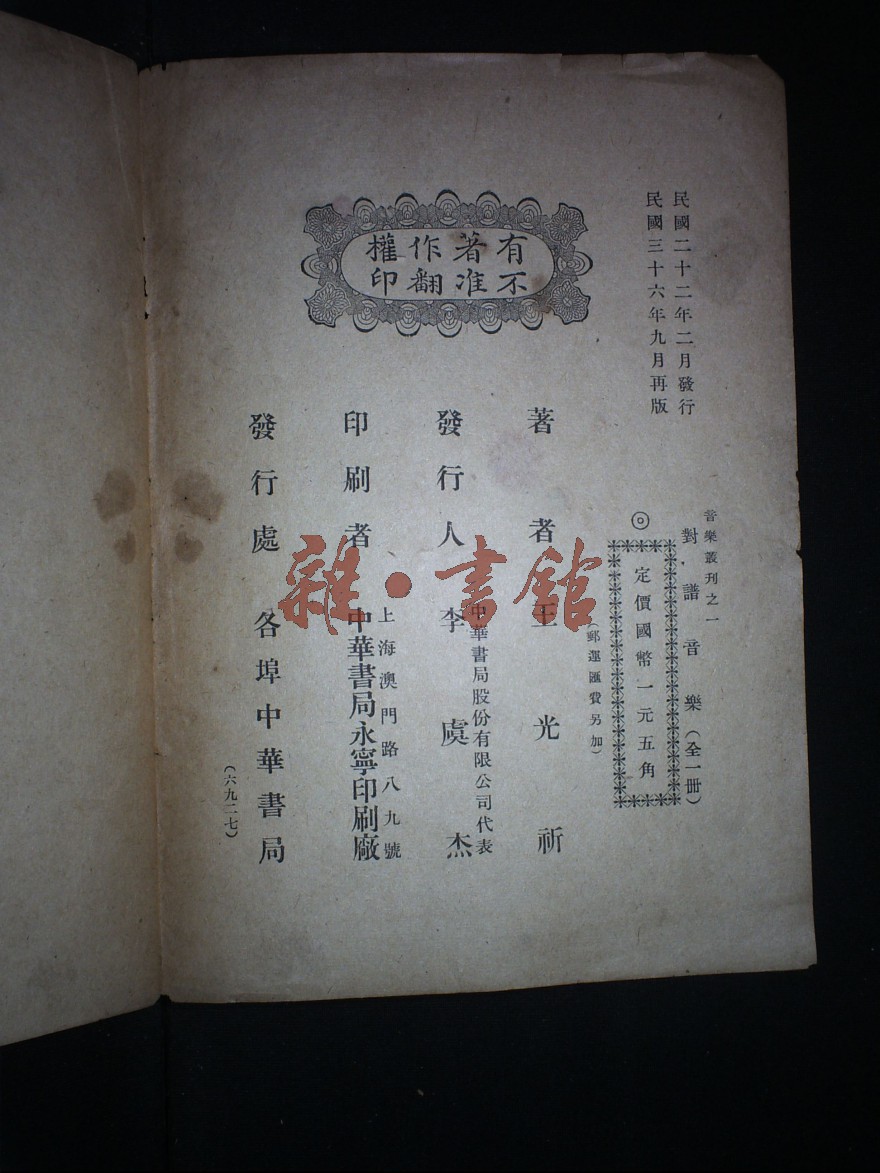 民國二十二年二月發行
民國三十六年九月再版
有著作權
不准翻印
音樂叢刊之一
對譜音樂（全一冊）
◎定價國幣一元五角
（郵運匯費另加）
著者 王光祈
中華書局股份有限公司代表
發行人 李虞杰
上海澳門路八九號
印刷者 中華書局永寧印刷廠
發行處 各埠中華書局
（六九二七）
雜·書館